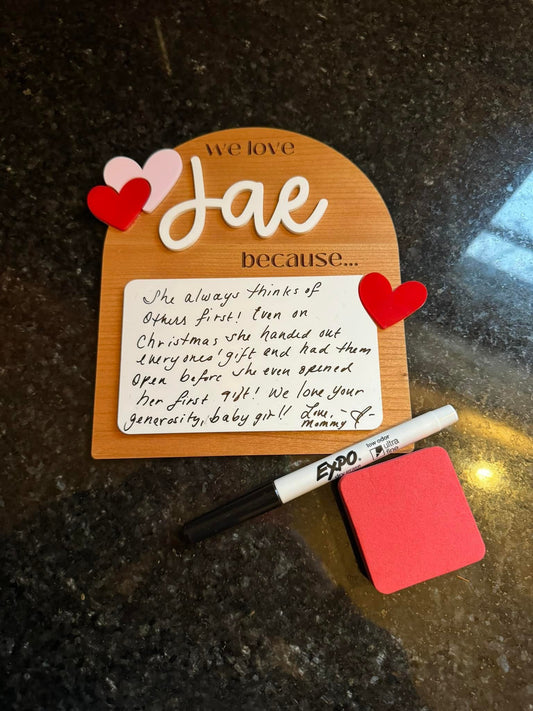 we love
Jae
because...
She always thinks of
Others first! Even on
Christmas she handed out
everyones' gift and had them
Open before she even opened
her first gift! We love your
generosity, baby girl!! Love,
Mommy
low odor
EXPO.
ultra
fine